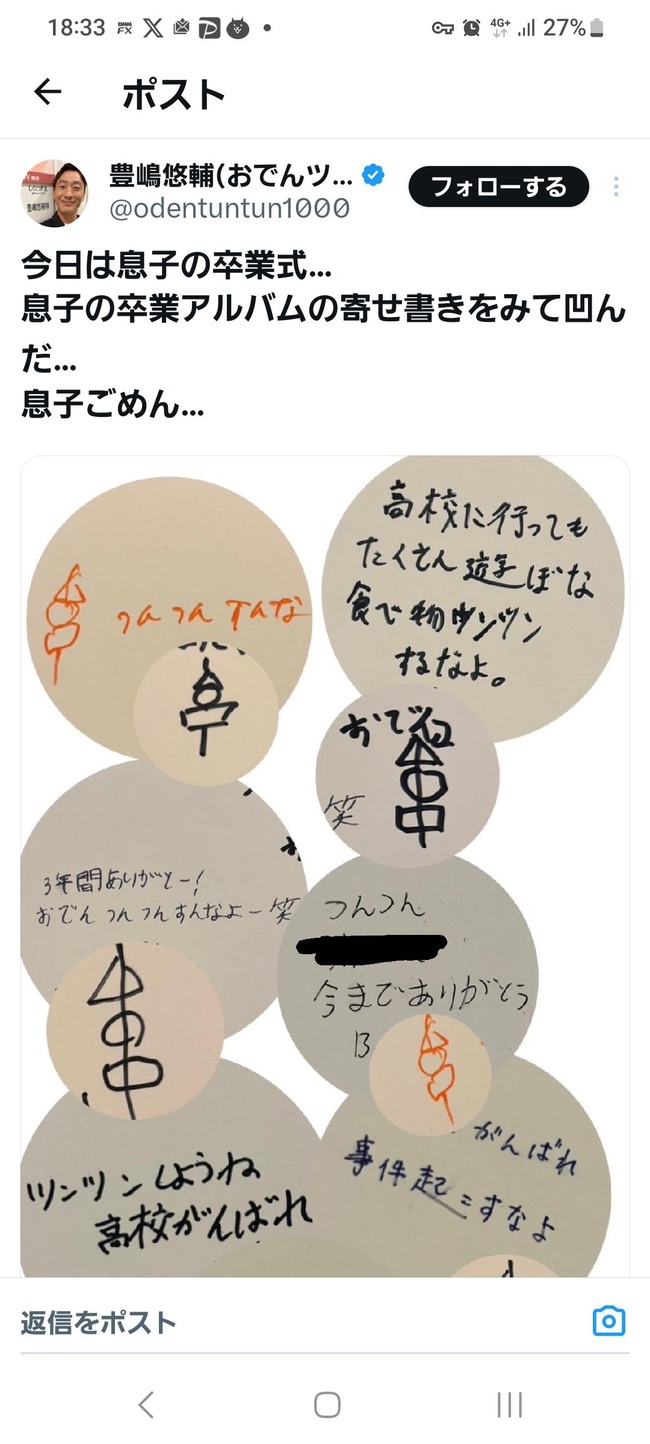 18:33
4G+
27%
ポスト
豊嶋悠輔(おでんツ...
@odentuntun1000
フォローする
今日は息子の卒業式...
息子の卒業アルバムの寄せ書きをみて凹ん
だ...
息子ごめん...
つんつんすんな
高校に行っても
たくさん遊ぼな
食べ物ツンツン
するなよ。
おでん
笑
3年間ありがとー!
おでんつんつんすんなよー笑
つんつん
今までありがとう
ツンツンしようね
高校がんばれ
がんばれ
事件起こすなよ
返信をポスト